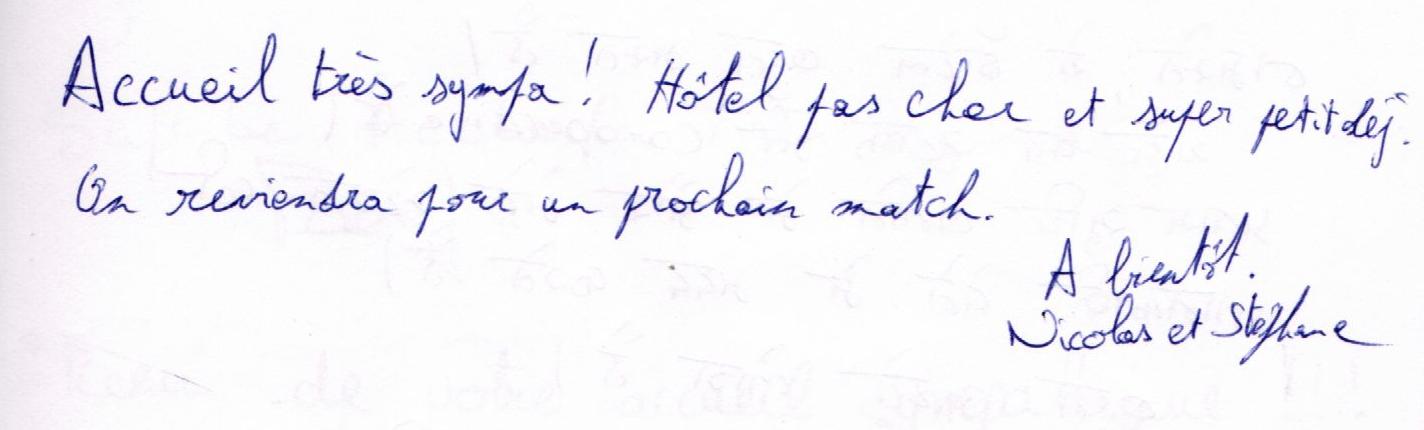 Accueil très sympa! Hôtel pas cher et super petit déj.
On reviendra pour un prochain match.
A bientôt.
Nicolas et Stéphane